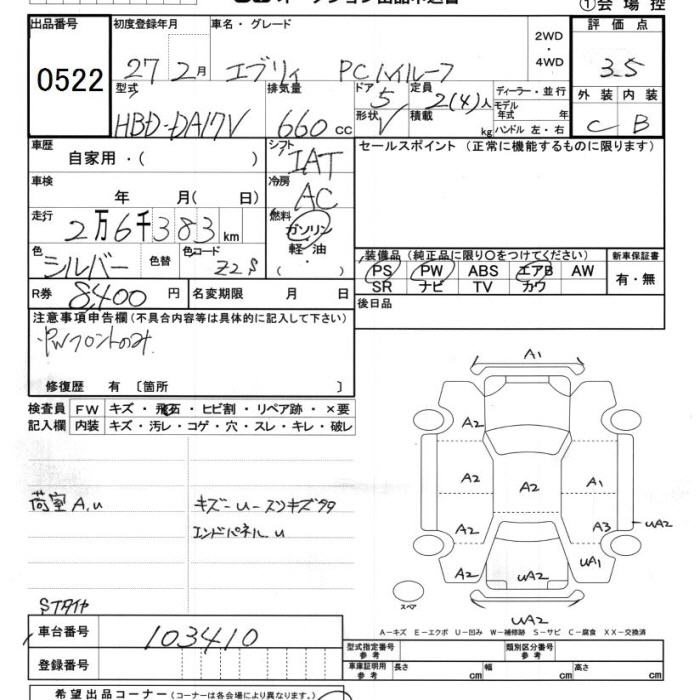 ①会場控
出品番号 初度登録年月 車名・グレード 2WD ・ 4WD 評価点
0522 27 2月 エブリィ PCハイルーフ 3.5
型式 排気量 ドア 5 定員 2(4)人 ディーラー・並行 外装 内装
HBD-DA17V 660cc 形状 V 積載 kg モデル年式 年 C B
ハンドル 左・右
車歴 自家用・( ) シフト IAT セールスポイント(正常に機能するものに限ります)
車検 年 月( 日) 冷房 AC
走行 2万6千383km 燃料 ガソリン
軽・油
( ・ )
色 シルバー 色替 色コード Z2S
装備品(純正品に限り〇をつけてください) 新車保証書
PS PW ABS エアB AW 有・無
SR ナビ TV カワ
R券 8,400円 名変期限 月 日 後日品
注意事項申告欄(不具合内容等は具体的に記入して下さい)
・PWフロントのみ
修復歴 有〔箇所 〕
検査員 FW キズ・飛石・ヒビ割・リペア跡・×要
記入欄 内装 キズ・汚レ・コゲ・穴・スレ・キレ・破レ
A1
A2
A2 A2 A1
A2 A3 uA2
A2 uA2 uA1
uA2
スペア
荷室 A,u キズ-u-スリキズタタ
エンドパネル u
STタイヤ
A-キズ E-エクボ U-凹み W-補修跡 S-サビ C-腐食 XX-交換済
車台番号 103410
登録番号
型式指定番号 参考 類別区分番号 参考
車庫証明用 参考 長さ cm 幅 cm 高さ cm
希望出品コーナー(コーナーは各会場により異なります。)